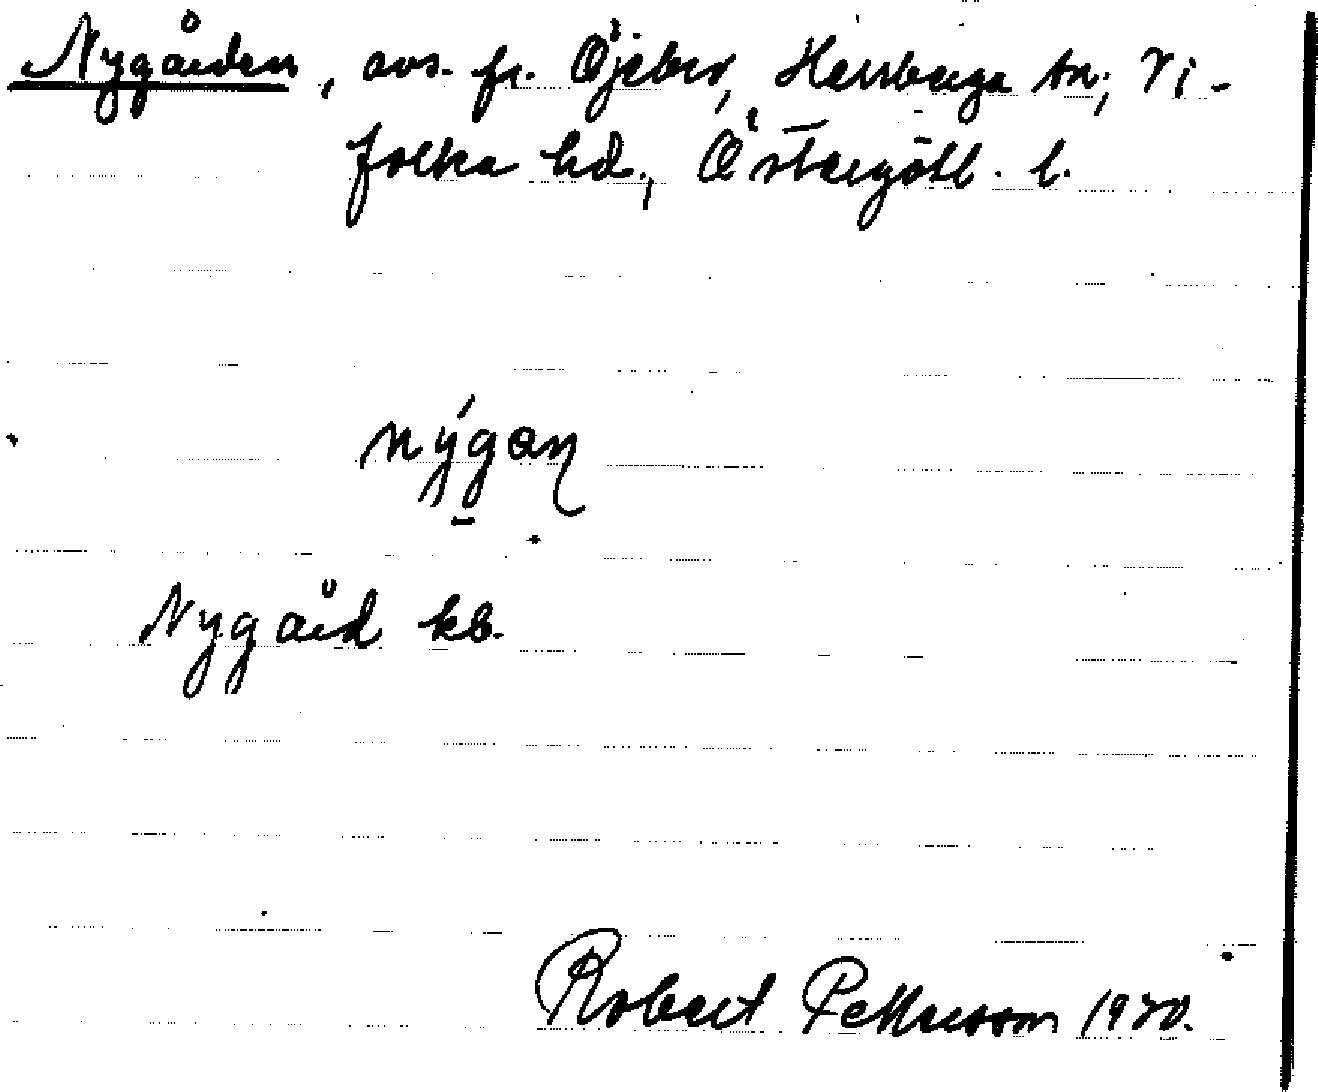 Nygården, avs. fr. Öjebro, Herrberga sn, Vi-
folka hd., Östergötl. l.
nýgan
Nygård kb.
Robert Pettersson 1930.